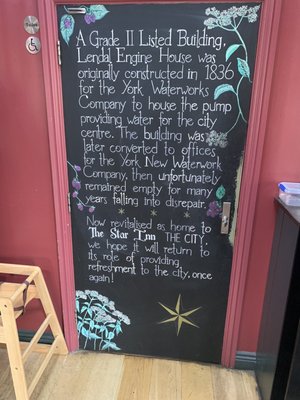 A Grade II Listed Building,
Lendal Engine House was
originally constructed in 1836
for the York Waterworks
Company to house the pump
providing water for the city
centre. The building was
later converted to offices
for the York New Waterwork
Company, then unfortunately
remained empty for many
years falling into disrepair.
Now revitalised as home to
The Star Inn THE CITY,
we hope it will return to
its role of providing
refreshment to the city, once
again!